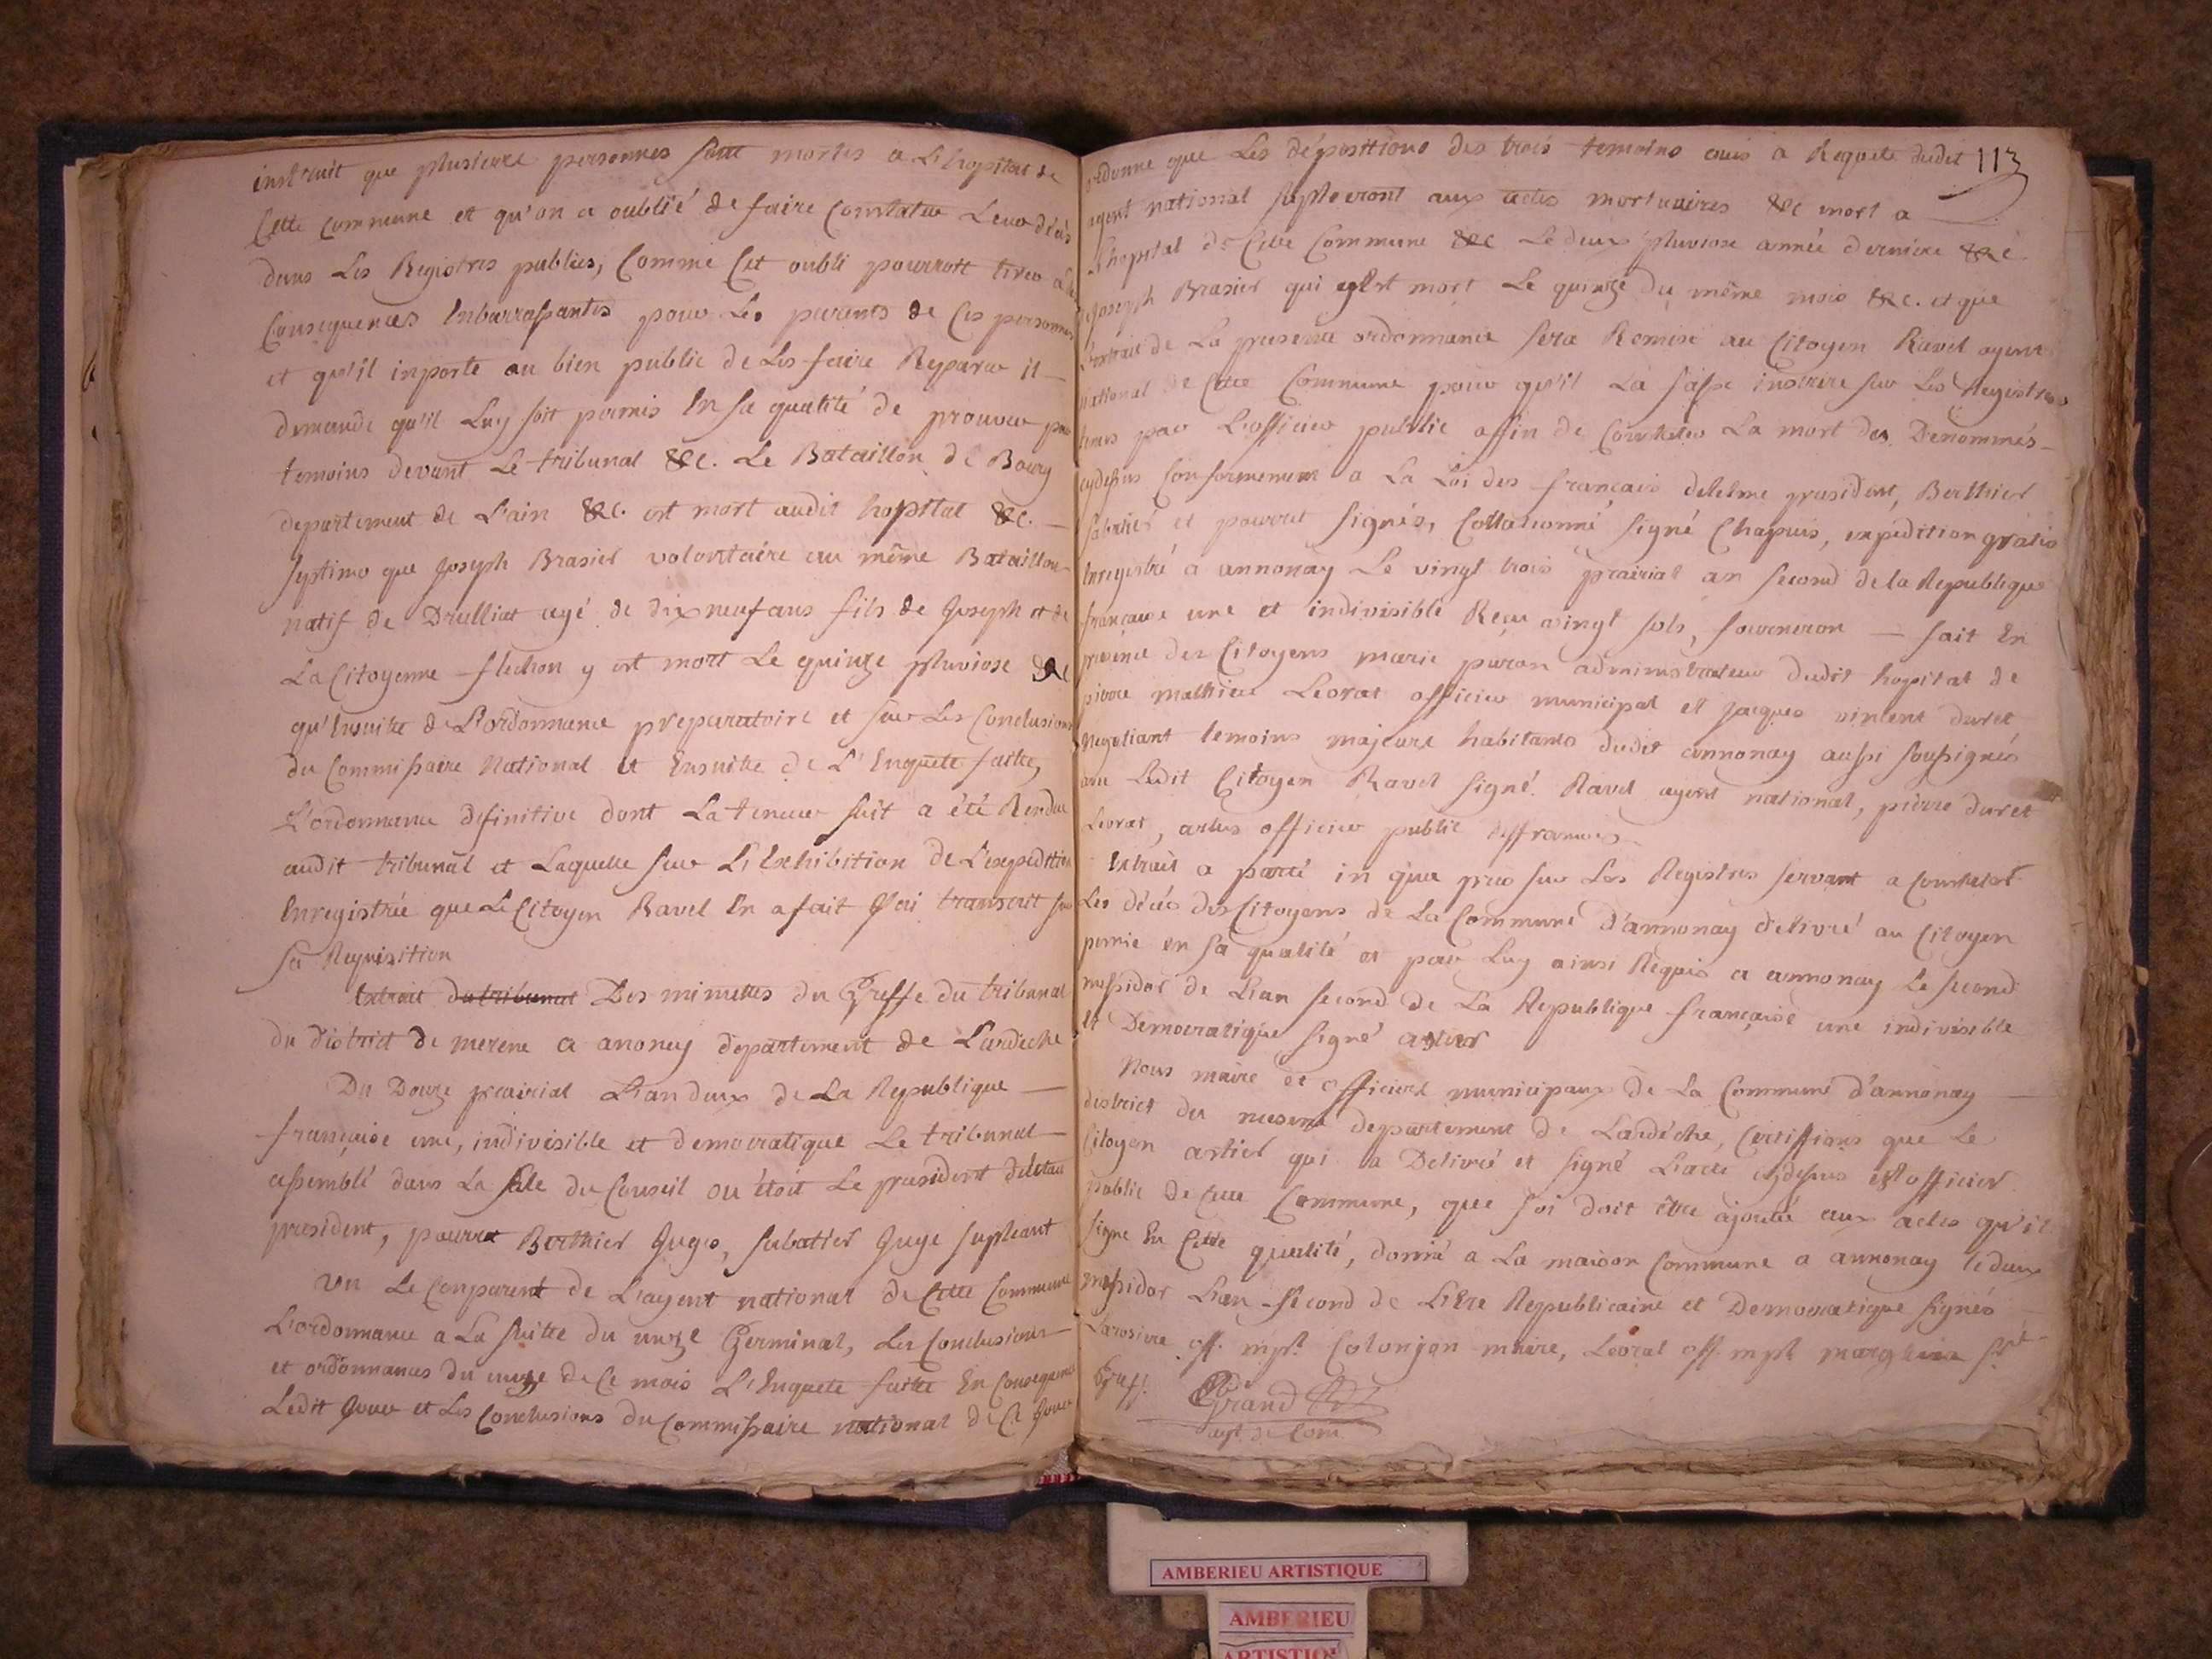 instruit que plusieurs personnes sont mortes a L'hopital de
Cette Commune et qu'on a oublié de faire Constater Leur décès
dans Les Registres publics, Comme Cet oubli pourroit tirer a des
Consequences Enbarrassantes pour Les parents de Ces personnes
et qu'il inporte au bien public de Les faire Reparer il
demande qu'il Luy soit permis En sa qualité de prouver par
temoins devant Le tribunal &c. Le Bataillon de Bourg
departement de L'ain &c. est mort audit hopital &c.
septimo que Joseph Brasier volontaire au même Bataillon
natif de Drulliat agé de dix neuf ans fils de Joseph et de
La Citoyenne flechon y est mort Le quinze pluviose &c
qu'Ensuitte de L'ordonnance preparatoire et sur Les Conclusions
du Commissaire National et Ensuitte de L'Enquete faitte,
L'ordonnance definitive dont La teneur suit a été Rendue
audit tribunal et Laquelle sur L'Exhibition de L'expedition
Enregistrée que Le Citoyen Ravel En a fait J'ai transcrit sur
sa Requisition
Extrait du tribunal Des minuttes du Greffe du tribunal
du District de mezene a anonay departement de L'ardeche
Du Douze prairial L'an deux de La Republique
française une, indivisible et democratique Le tribunal
assemblé dans La sale du Conseil ou étoit Le president
president, pourret Berthier Juges, sabatier Juge supleant
vu Le Comparent de L'agent national de Cette Commune
L'ordonnance a La suitte du onze Germinal, Les Conclusions
et ordonnances du onze de Ce mois L'Enquete faitte En Consequence
Ledit Jour et Les Conclusions du Commissaire national de Ce Jour
113
ordonne que Les dépositions des trois temoins ouis a Requete dudit
agent national supleeront aux actes mortuaires &c mort a
L'hopital de Cette Commune &c Le deux pluviose année derniere &c
Joseph Brasier qui est mort Le quinze du même mois &c. et que
L'extrait de La presente ordonnance sera Remise au Citoyen Ravel agent
national de Cette Commune pour qu'il La fasse inscrire sur Les Registres
tenus par L'officier public affin de Constater La mort des Denommés
cydessus Conformement a La Loi des français delelme president, Berthier
sabatier et pourret signés, Collationné signé Chapuis, expedition gratis
Enregistré a annonay Le vingt trois prairial an second de la Republique
française une et indivisible Reçu vingt sols, fourneron — fait En
presence des Citoyens marie puron administrateur dudit hopital de
pierre mathieu Leorat officier municipal et jacques vincent duret
Negotiant temoins majeurs habitants dudit annonay aussi soussignés
avec Ledit Citoyen Ravel signé. Ravel agent national, pierre duret
Leorat, officier public
Extrait a parté in qua pris sur Les Registres servant a Constater
Les décés des Citoyens de La Commune d'annonay delivré au Citoyen
pernie en sa qualité et par Luy ainsi Requis a annonay Le second
messidor de L'an second de La Republique française une indivisible
et Democratique signé
Nous maire et officiers municipaux de La Commune d'annonay
district du mesene departement de L'ardéche, Certiffions que Le
Citoyen artier qui a Delivré et signé L'acte cydessus est officier
public de Cette Commune, que foi doit être ajoutée aux actes qu'il
signe En Cette qualité, donné a La maison Commune a annonay le deux
messidor L'an second de L'Ere Republicaine et Democratique signés
Larosiere off. mpl. Colonjon maire, Leorat off. mpl
Greff. Grand
AMBERIEU ARTISTIQUE
AMBERIEU
ARTISTIQUE